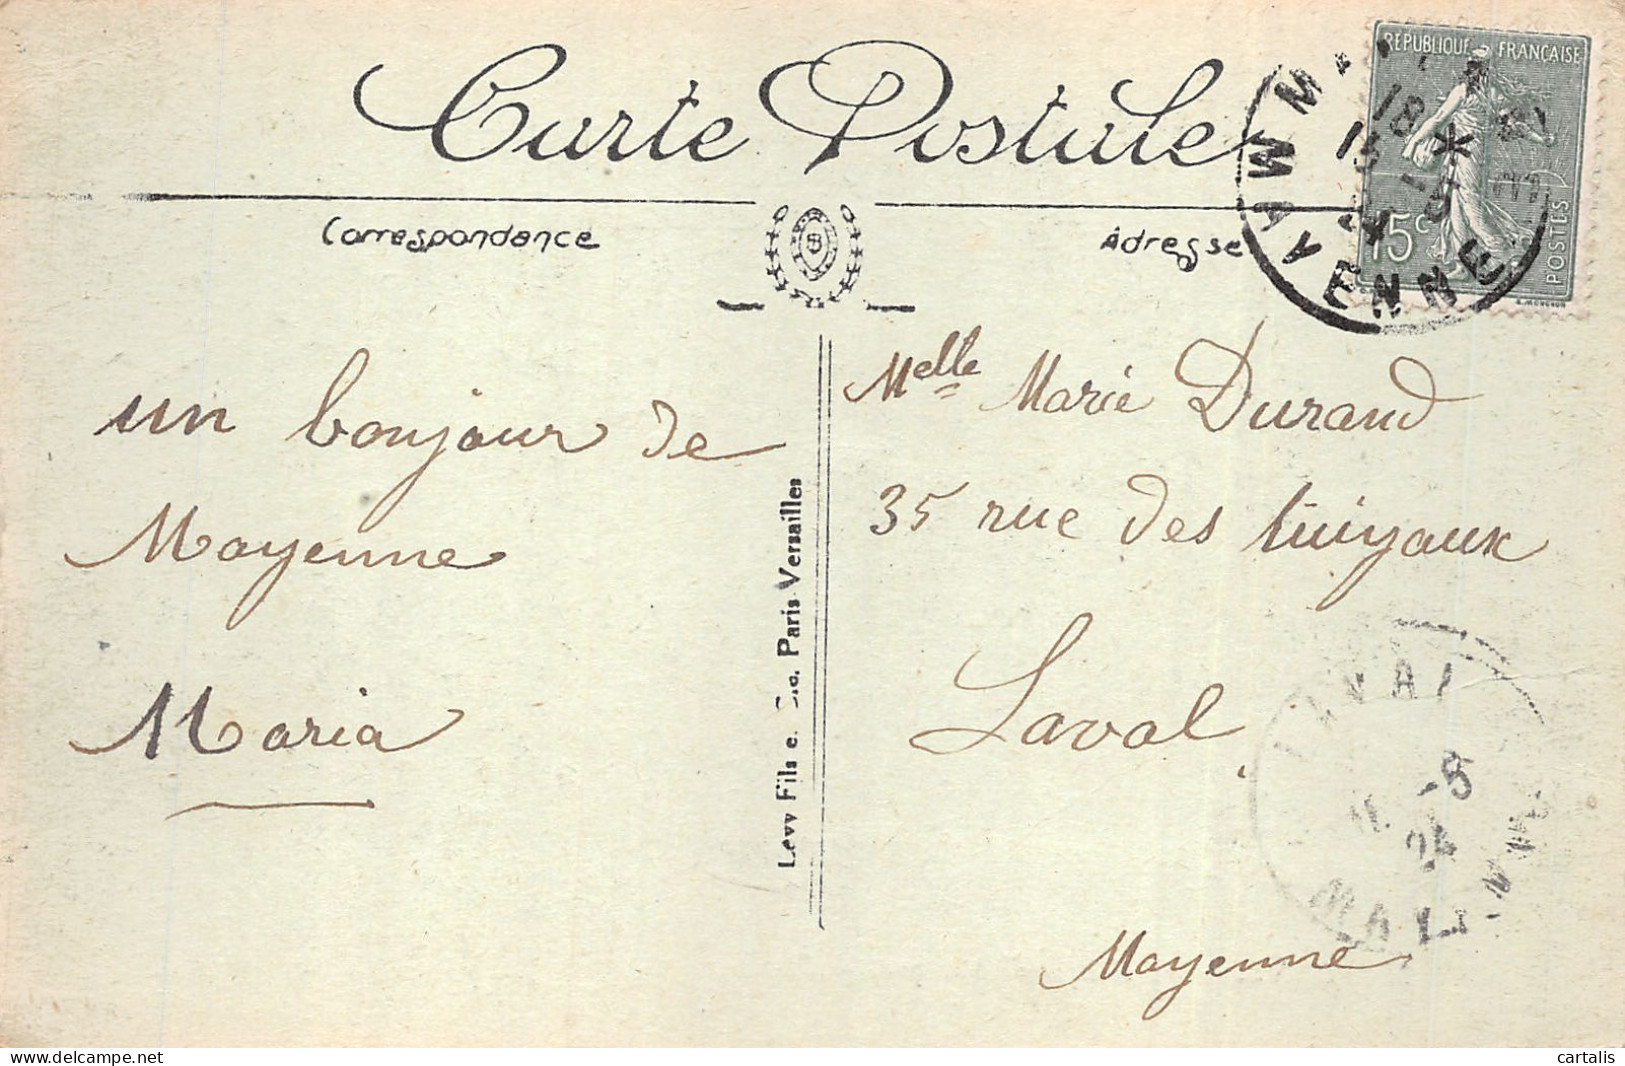 Carte Postale
Correspondance
Adresse
RÉPUBLIQUE FRANÇAISE
15c
POSTES
MAYENNE
un bonjour de
Mayenne
Maria
Levy Fils e. Cie. Paris-Versailles
Melle Marie Durand
35 rue des
Laval
Mayenne
LAVAL
24
MAYENNE
cartalis